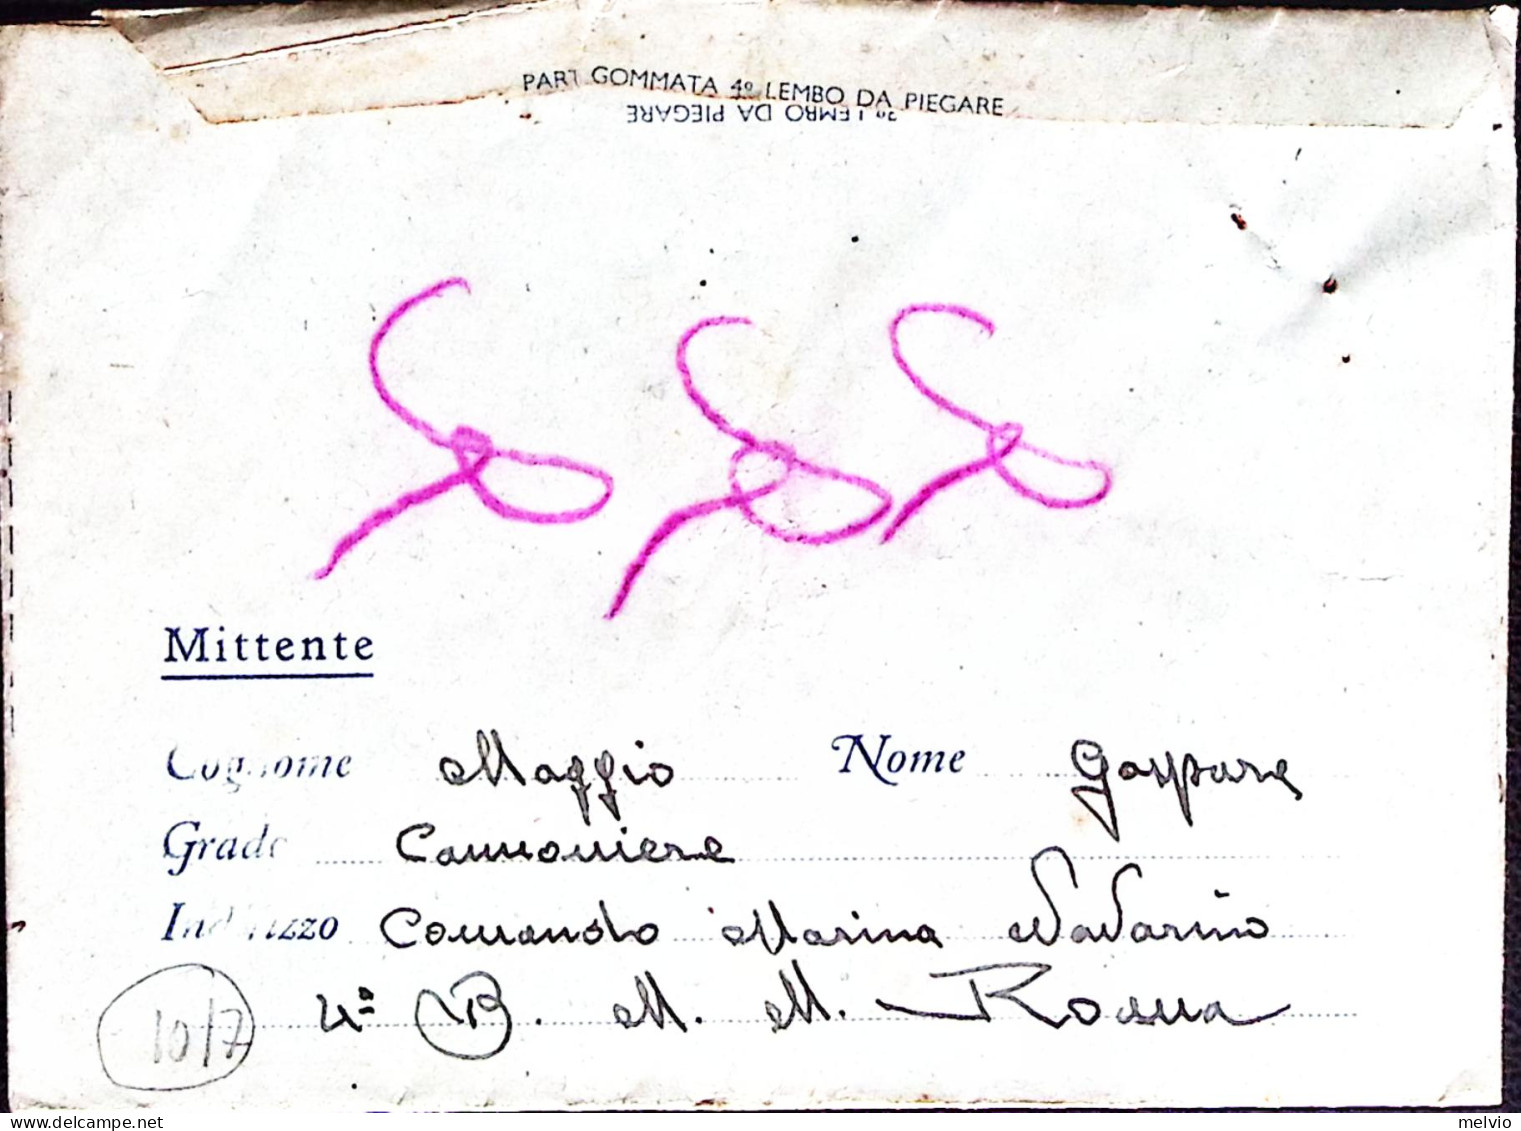 PART GOMMATA 4º LEMBO DA PIEGARE
3º LEMBO DA PIEGARE
Mittente
Cognome Maggio Nome Gaspare
Grado Cannoniere
Indirizzo Comando Marina Navarino
4ª B. M. M. Roma
10/7
melvio